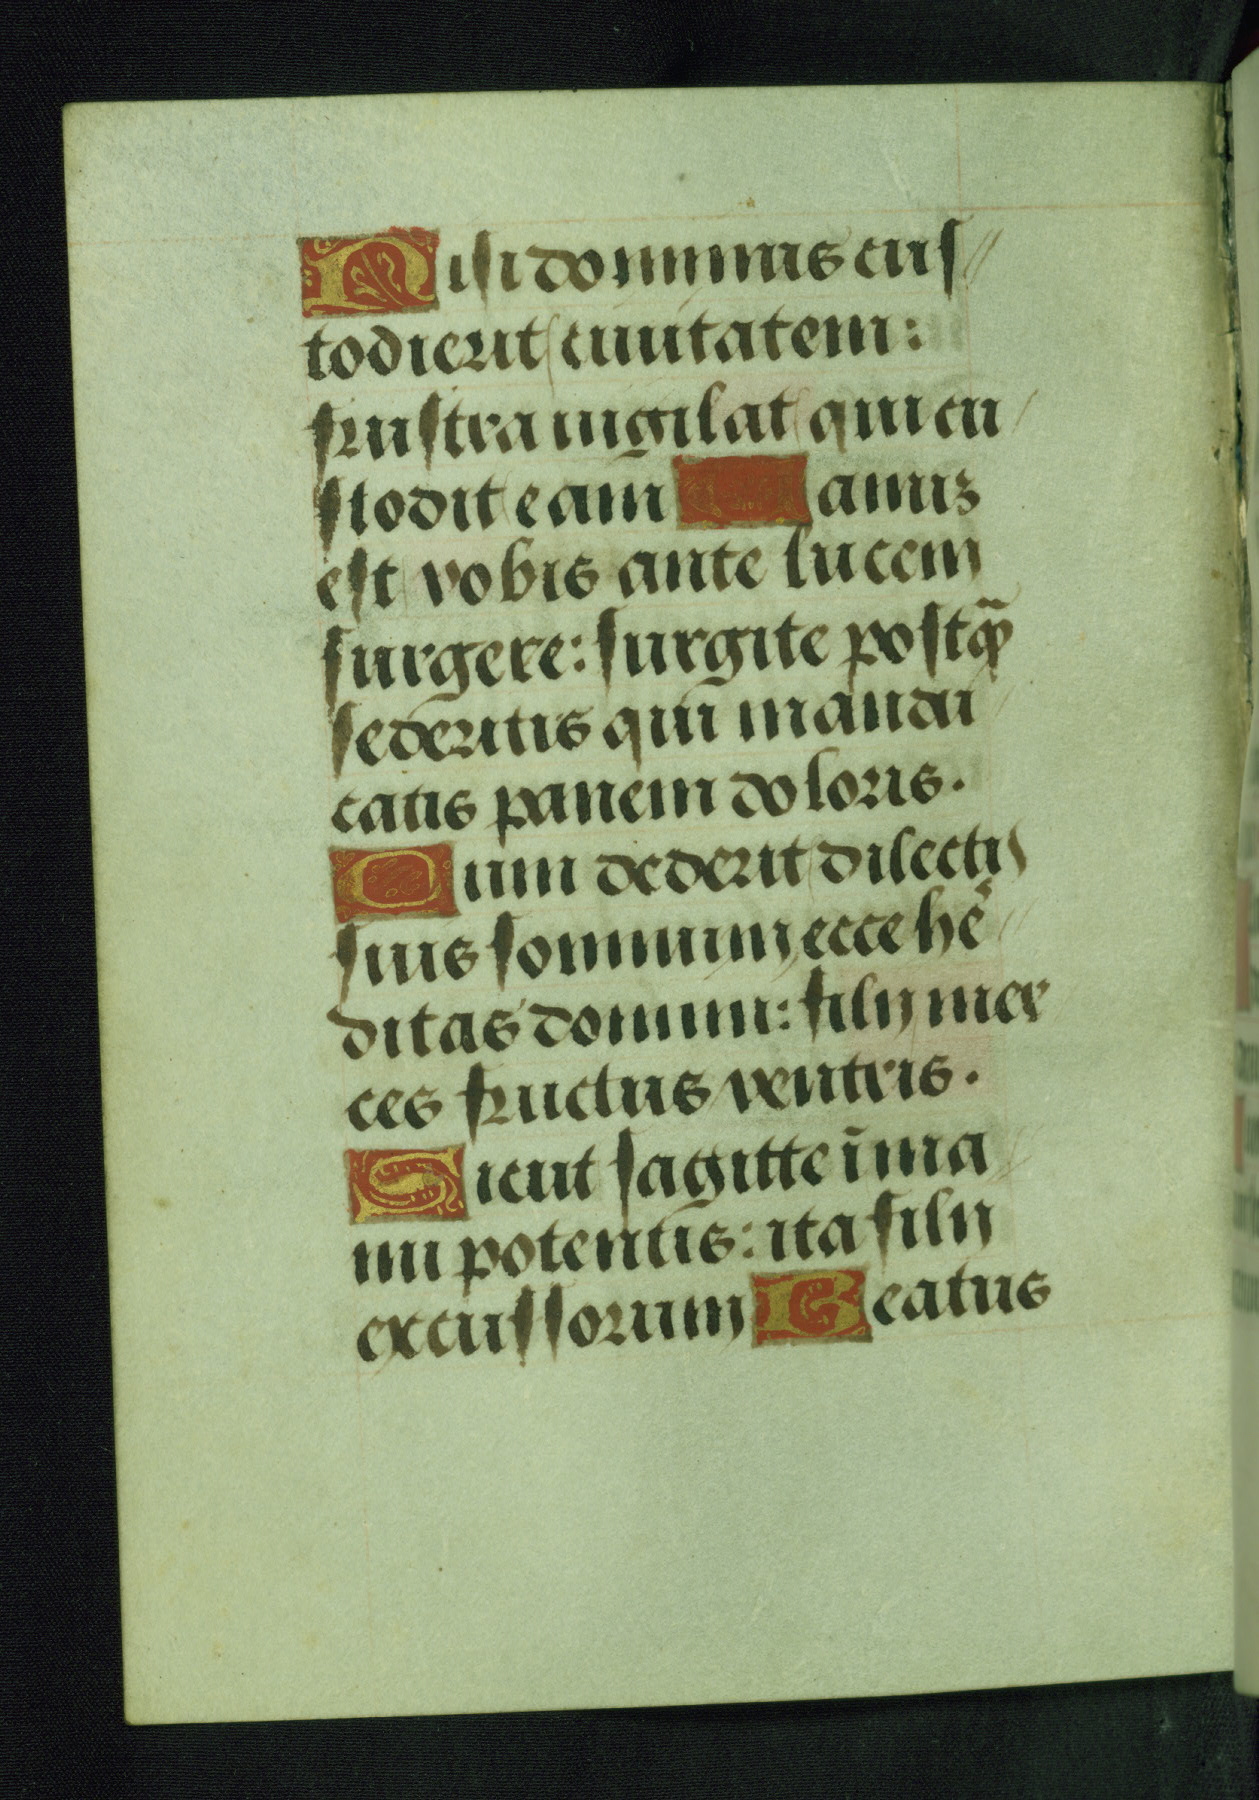 Nisi dominus cus
todierit civitatem:
frustra vigilat qui cu
stodit eam Vanuʒ
est vobis ante lucem
surgere: surgite postꝙ̃
sederitis qui mandu
catis panem doloris.
Cum dederit dilectis
suis somnum ecce hẽ
ditas domini: filij mer
ces fructus ventris.
Sicut sagitte ĩ ma
nu potentis: ita filij
excussorum Beatus